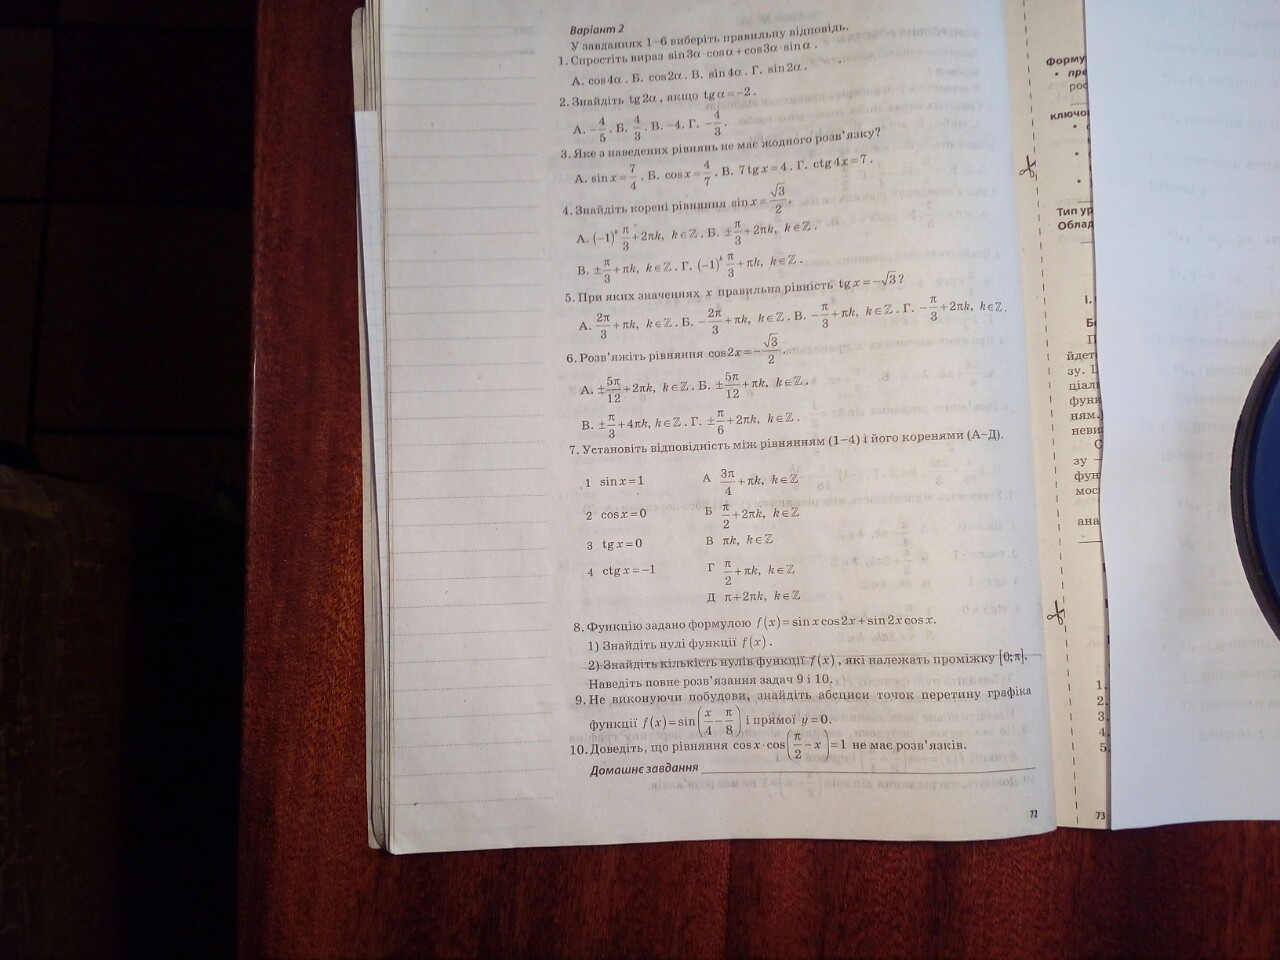 Варіант 2
У завданнях 1–6 виберіть правильну відповідь.
1. Спростіть вираз sin3α·cosα+cos3α·sinα.
А. cos4α. Б. cos2α. В. sin4α. Г. sin2α.
2. Знайдіть tg2α, якщо tgα=−2.
А. −4/5. Б. 4/3. В. −4. Г. −4/3.
3. Яке з наведених рівнянь не має жодного розв'язку?
А. sinx=7/4. Б. cosx=4/7. В. 7tgx=4. Г. ctg4x=7.
4. Знайдіть корені рівняння sinx=√3/2.
А. (−1)ᵏ π/3+2πk, k∈ℤ. Б. ±π/3+2πk, k∈ℤ.
В. ±π/3+πk, k∈ℤ. Г. (−1)ᵏ π/3+πk, k∈ℤ.
5. При яких значеннях x правильна рівність tgx=−√3?
А. 2π/3+πk, k∈ℤ. Б. −2π/3+πk, k∈ℤ. В. −π/3+πk, k∈ℤ. Г. −π/3+2πk, k∈ℤ.
6. Розв'яжіть рівняння cos2x=−√3/2.
А. ±5π/12+2πk, k∈ℤ. Б. ±5π/12+πk, k∈ℤ.
В. ±π/3+4πk, k∈ℤ. Г. ±π/6+2πk, k∈ℤ.
7. Установіть відповідність між рівнянням (1–4) і його коренями (А–Д).
1 sinx=1 А 3π/4+πk, k∈ℤ
2 cosx=0 Б π/2+2πk, k∈ℤ
3 tgx=0 В πk, k∈ℤ
4 ctgx=−1 Г π/2+πk, k∈ℤ
Д π+2πk, k∈ℤ
8. Функцію задано формулою f(x)=sinxcos2x+sin2xcosx.
1) Знайдіть нулі функції f(x).
2) Знайдіть кількість нулів функції f(x), які належать проміжку [0;π].
Наведіть повне розв'язання задач 9 і 10.
9. Не виконуючи побудови, знайдіть абсциси точок перетину графіка
функції f(x)=sin(x/4−π/8) і прямої y=0.
10. Доведіть, що рівняння cosx·cos(π/2−x)=1 не має розв'язків.
Домашнє завдання
72
Форму
• пре
рос
ключо
Тип ур
Облад
І.
йдет
зу. І
ціал
функ
ням.
неви
зу —
фун
мос
ана
1.
2.
3.
4.
5.
73